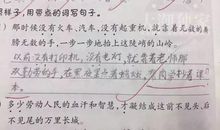 照样子，用带点的词写句子。
) 那时候没有火车、汽车，没有起重机，就靠着无数的肩
膀无数的手，一步一步地抬上这陡峭的山岭。
以前没有打印机，没有电灯，就靠着老师那
双勤劳的手，在黑夜里点着蜡烛，
) 多少劳动人民的血汗和智慧，才凝结成这前不见头、
后不见尾的万里长城。